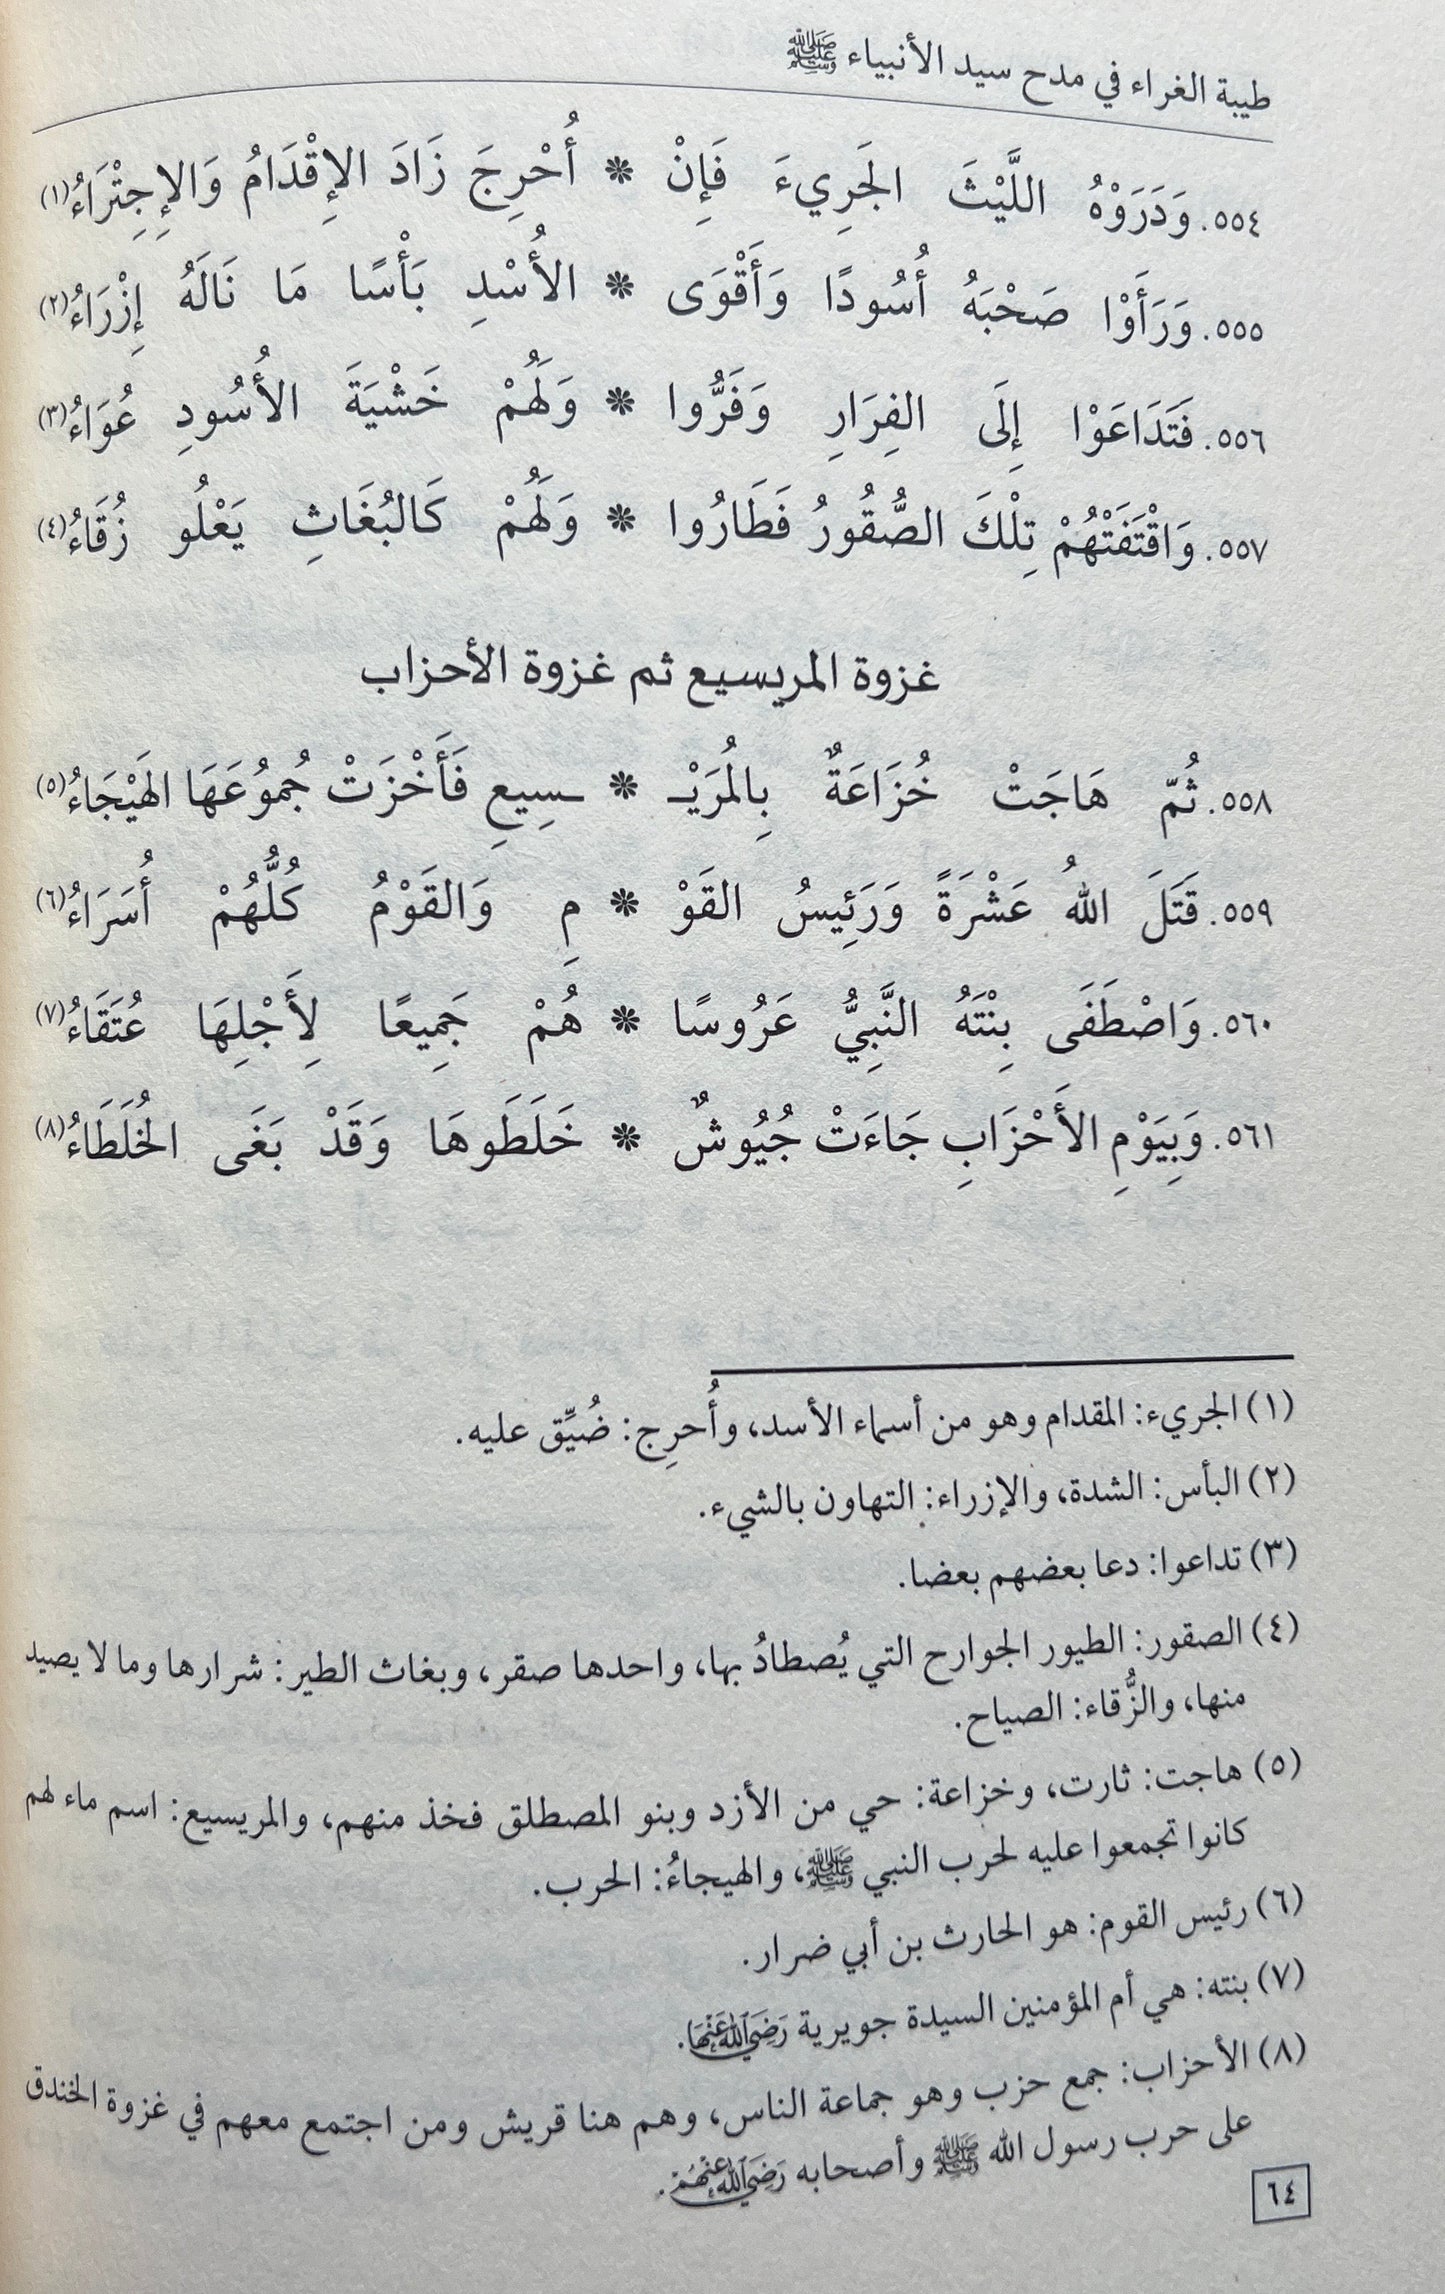 طيبة الغراء في مدح سيد الأنبياء ﷺ
٥٥٤. وَدَرَوْهُ اللَّيْثَ الجَرِيءَ فَإِنْ * أُحْرِجَ زَادَ الإِقْدَامُ وَالإِجِتْرَاءُ(١)
٥٥٥. وَرَأَوْا صَحْبَهُ أُسُودًا وَأَقْوَى * الأُسْدِ بَأْسًا مَا نَالَهُ إِزْرَاءُ(٢)
٥٥٦. فَتَدَاعَوْا إِلَى الفِرَارِ وَفَرُّوا * وَلَهُمْ خَشْيَةَ الأُسُودِ عُوَاءُ(٣)
٥٥٧. وَاقْتَفَتْهُمْ تِلْكَ الصُّقُورُ فَطَارُوا * وَلَهُمْ كَالبُغَاثِ يَعْلُو زُقَاءُ(٤)
غزوة المريسيع ثم غزوة الأحزاب
٥٥٨. ثُمّ هَاجَتْ خُزَاعَةٌ بِالمُرَيْـ * ـسِيعِ فَأَخْزَتْ جُمُوعَهَا الهَيْجَاءُ(٥)
٥٥٩. قَتَلَ اللهُ عَشْرَةً وَرَئِيسُ القَوْ * مِ وَالقَوْمُ كُلُّهُمْ أُسَرَاءُ(٦)
٥٦٠. وَاصْطَفَى بِنْتَهُ النَّبِيُّ عَرُوسًا * هُمْ جَمِيعًا لِأَجْلِهَا عُتَقَاءُ(٧)
٥٦١. وَبِيَوْمِ الأَحْزَابِ جَاءَتْ جُيُوشٌ * خَلَطَوهَا وَقَدْ بَغَى الخُلَطَاءُ(٨)
(١) الجريء: المقدام وهو من أسماء الأسد، وأُحرِج: ضُيِّق عليه.
(٢) البأس: الشدة، والإزراء: التهاون بالشيء.
(٣) تداعوا: دعا بعضهم بعضا.
(٤) الصقور: الطيور الجوارح التي يُصطادُ بها، واحدها صقر، وبغاث الطير: شرارها وما لا يصيد
منها، والزُّقاء: الصياح.
(٥) هاجت: ثارت، وخزاعة: حي من الأزد وبنو المصطلق فخذ منهم، والمريسيع: اسم ماء لهم
كانوا تجمعوا عليه لحرب النبي ﷺ، والهيجاءُ: الحرب.
(٦) رئيس القوم: هو الحارث بن أبي ضرار.
(٧) بنته: هي أم المؤمنين السيدة جويرية رَضِيَ اللَّهُ عَنْهَا.
(٨) الأحزاب: جمع حزب وهو جماعة الناس، وهم هنا قريش ومن اجتمع معهم في غزوة الخندق
على حرب رسول الله ﷺ وأصحابه رَضِيَ اللَّهُ عَنْهُمْ.
٦٤